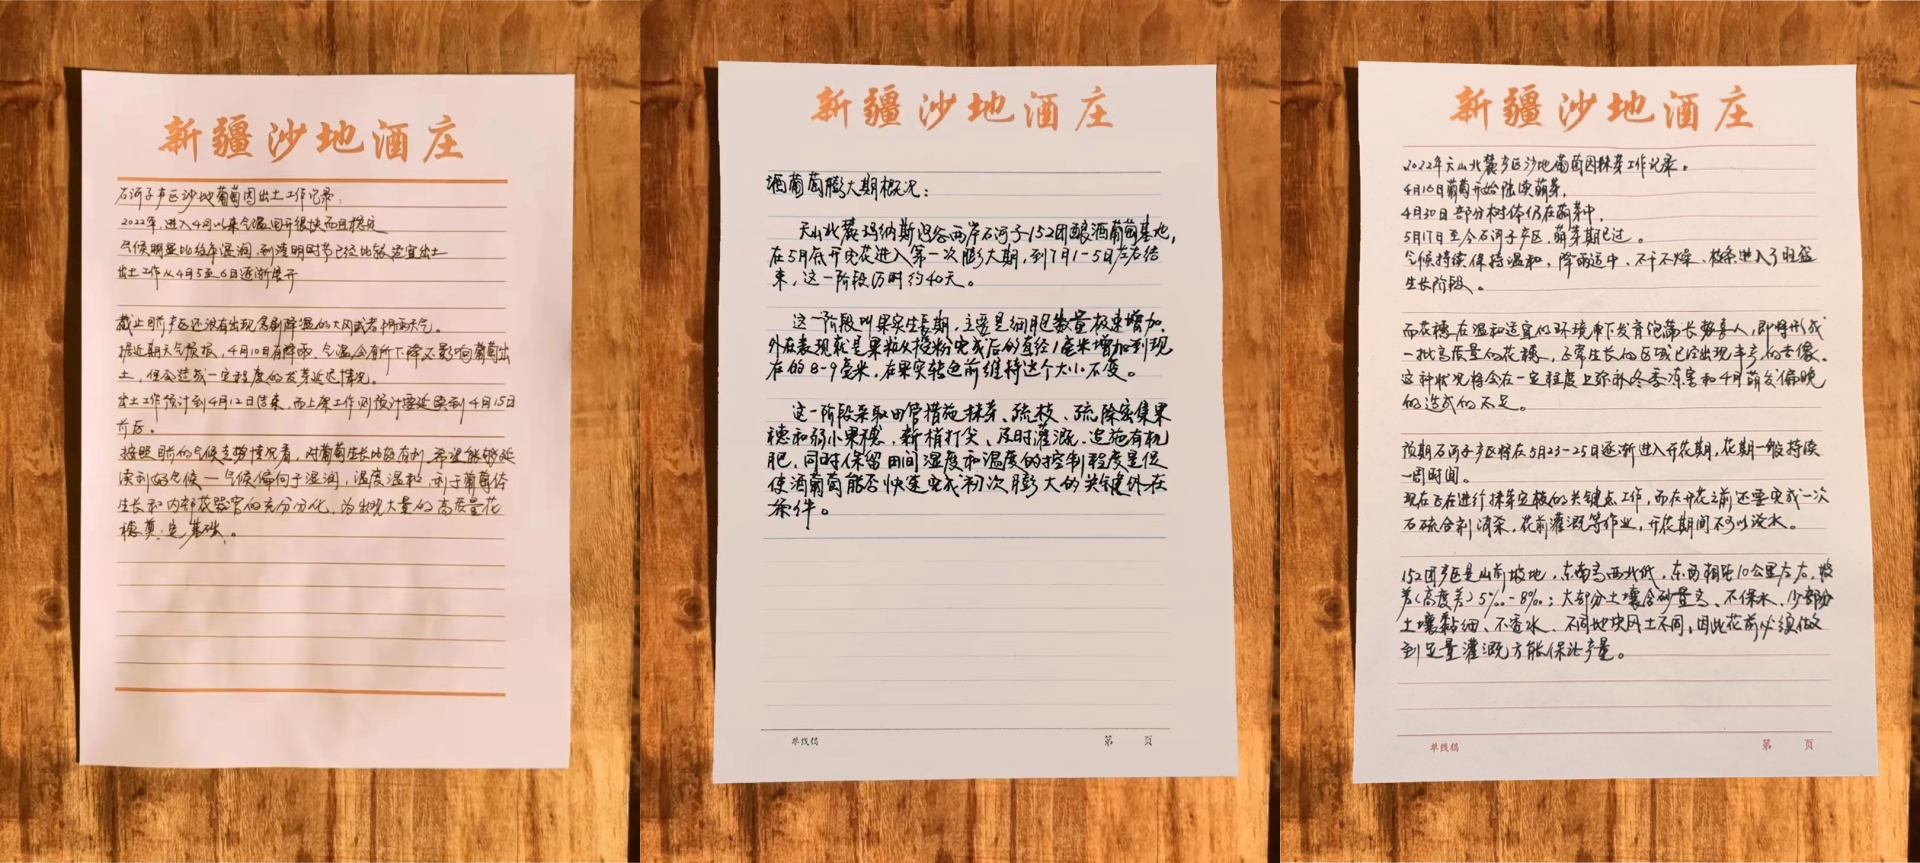 新疆沙地酒庄
石河子产区沙地葡萄园出土工作记录：
2022年，进入4月以来气温回升很快而且稳定
气候明显比较湿润，到清明时节已经比较适宜出土
出土工作从4月5至6日逐渐展开
截止目前产区还没有出现急剧降温的大风或者阴雨天气。
据近期天气预报，4月10日有降雨，气温会有所下降不影响葡萄出
土，但会造成一定程度的发芽延迟情况。
出土工作预计到4月12日结束，而上架工作则预计要延续到4月15日
前后。
按照目前的气候走势情况看，对葡萄生长比较有利，希望能够延
续利好气候—气候偏向于湿润，温度温和，利于葡萄体
生长和内部花器官的充分分化，为出现大量的高质量花
穗奠定基础。
新疆沙地酒庄
酒葡萄膨大期概况：
天山北麓玛纳斯河谷两岸石河子152团酿酒葡萄基地，
在5月低开完花进入第一次膨大期，到7月1-5日左右结
束，这一阶段历时约40天。
这一阶段叫果实生长期，主要是细胞数量极速增加，
外在表现就是果粒从授粉完成后的直经1毫米增加到现
在的8-9毫米，在果实转色前维持这个大小不变。
这一阶段采取田管措施抹芽、疏枝、疏除密集果
穗和弱小果穗、新梢打尖、及时灌溉、追施有机
肥，同时保留田间湿度和温度的控制程度是促
使酒葡萄能否快速完成初次膨大的关键外在
条件。
单线稿
第 页
新疆沙地酒庄
2022年天山北麓产区沙地葡萄园抹芽工作记录。
4月16日葡萄开始陆续萌芽，
4月30日部分树体仍在萌芽中，
5月17日至今石河子产区，萌芽期已过。
气候持续保持温和，降雨适中、不干不燥、枝条进入了旺盛
生长阶段。
而花穗在温和适宜的环境下发育饱满长势喜人，即将形成
一批高质量的花穗，正常生长的区域已经出现丰产的苗像。
这种状况将会在一定程度上弥补冬季冻害和4月萌发偏晚
的造成的不足。
预期石河子产区将在5月23-25日逐渐进入开花期，花期一般持续
一周时间。
现在正在进行抹芽定梢的关键点工作，而在开花之前还要完成一次
石硫合剂清杂，花前灌溉等作业，开花期间不可以浇水。
152团产区是山前坡地，东南高西北低，东西相距10公里左右，落
差（高度差）5‰-8‰；大部分土壤含砂量高、不保水，少部分
土壤黏细、不透水、不同地块风土不同，因此花前必须做
到足量灌溉方能保证产量。
单线稿
第 页